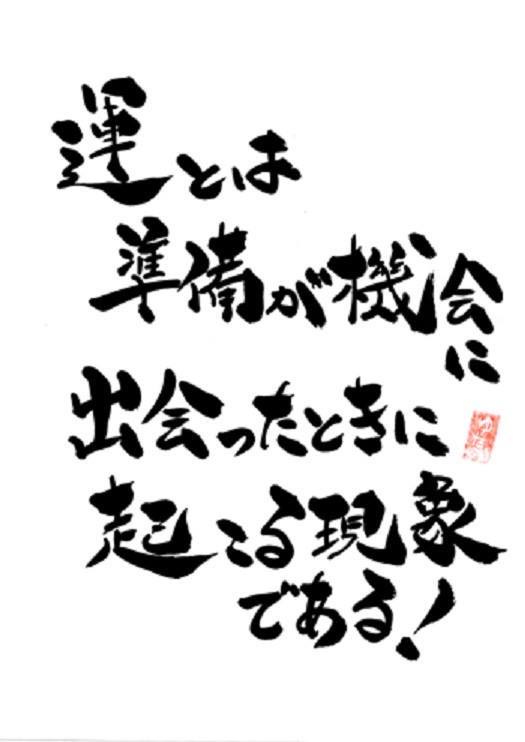 運とは
準備が機会
に
出会ったときに
起こる現象
である!